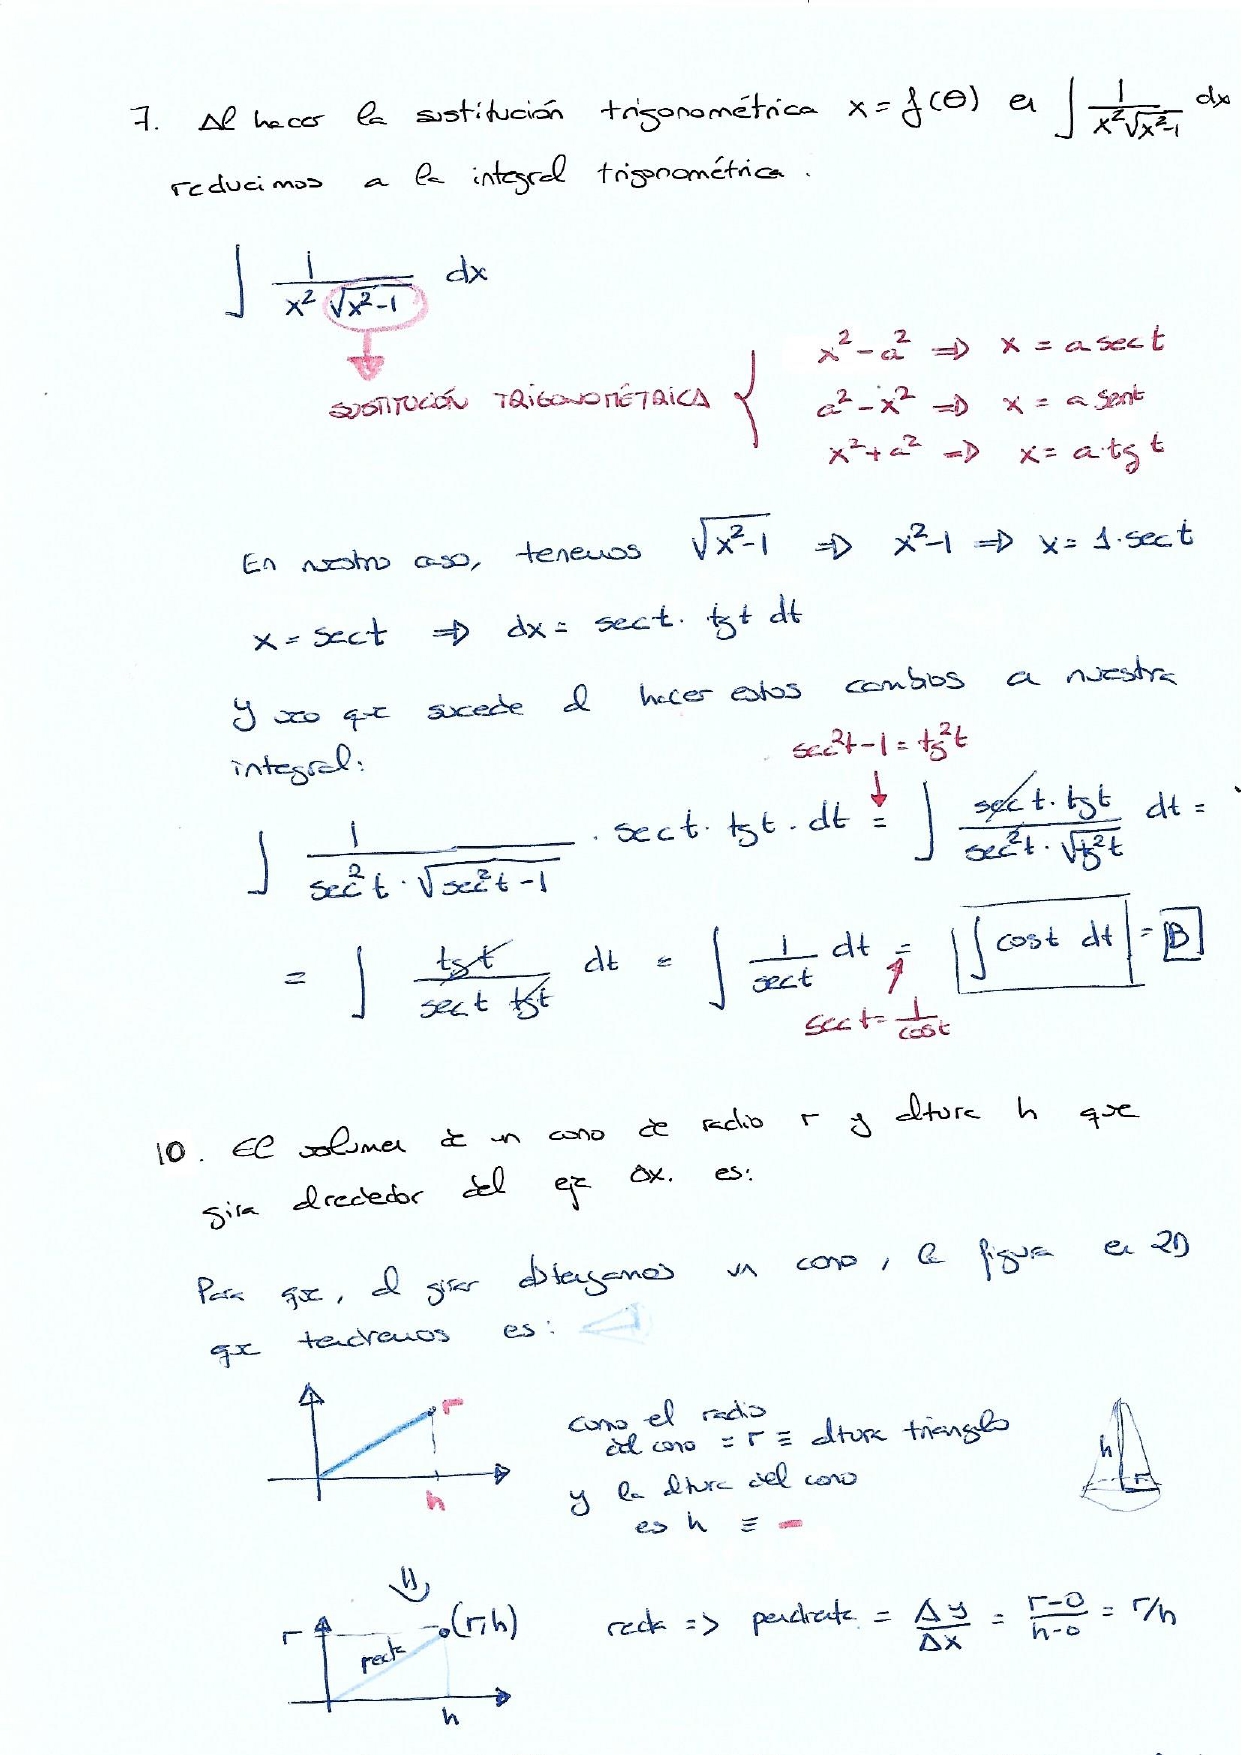 7. Al hacer la sustitución trigonométrica x = f(θ) en ∫ 1/(x²√(x²-1)) dx
reducimos a la integral trigonométrica.
∫ 1/(x² √(x²-1)) dx
x² - a² => x = a sec t
SUSTITUCIÓN TRIGONOMÉTRICA { a² - x² => x = a sent
x² + a² => x = a·tg t
En nuestro caso, tenemos √(x²-1) => x²-1 => x = 1·sec t
x = sec t => dx = sec t · tg t dt
Y veo que sucede al hacer estos cambios a nuestra
integral:
sec²t - 1 = tg²t
∫ 1/(sec²t · √(sec²t - 1)) · sec t · tg t · dt = ∫ (sec t · tg t)/(sec²t · √(tg²t)) dt =
= ∫ tg t/(sec t tg t) dt = ∫ 1/sec t dt = ∫ cos t dt = B
sec t = 1/cos t
10. El volumen de un cono de radio r y altura h que
gira alrededor del eje OX. es:
Para que, al girar obtengamos un cono, la figura en 2D
que tendremos es:
r
h
como el radio
del cono = r ≡ altura triángulo
y la altura del cono
es h ≡ -
h
r
r
(r,h)
recta
h
recta => pendiente = Δy/Δx = (r-0)/(h-0) = r/h